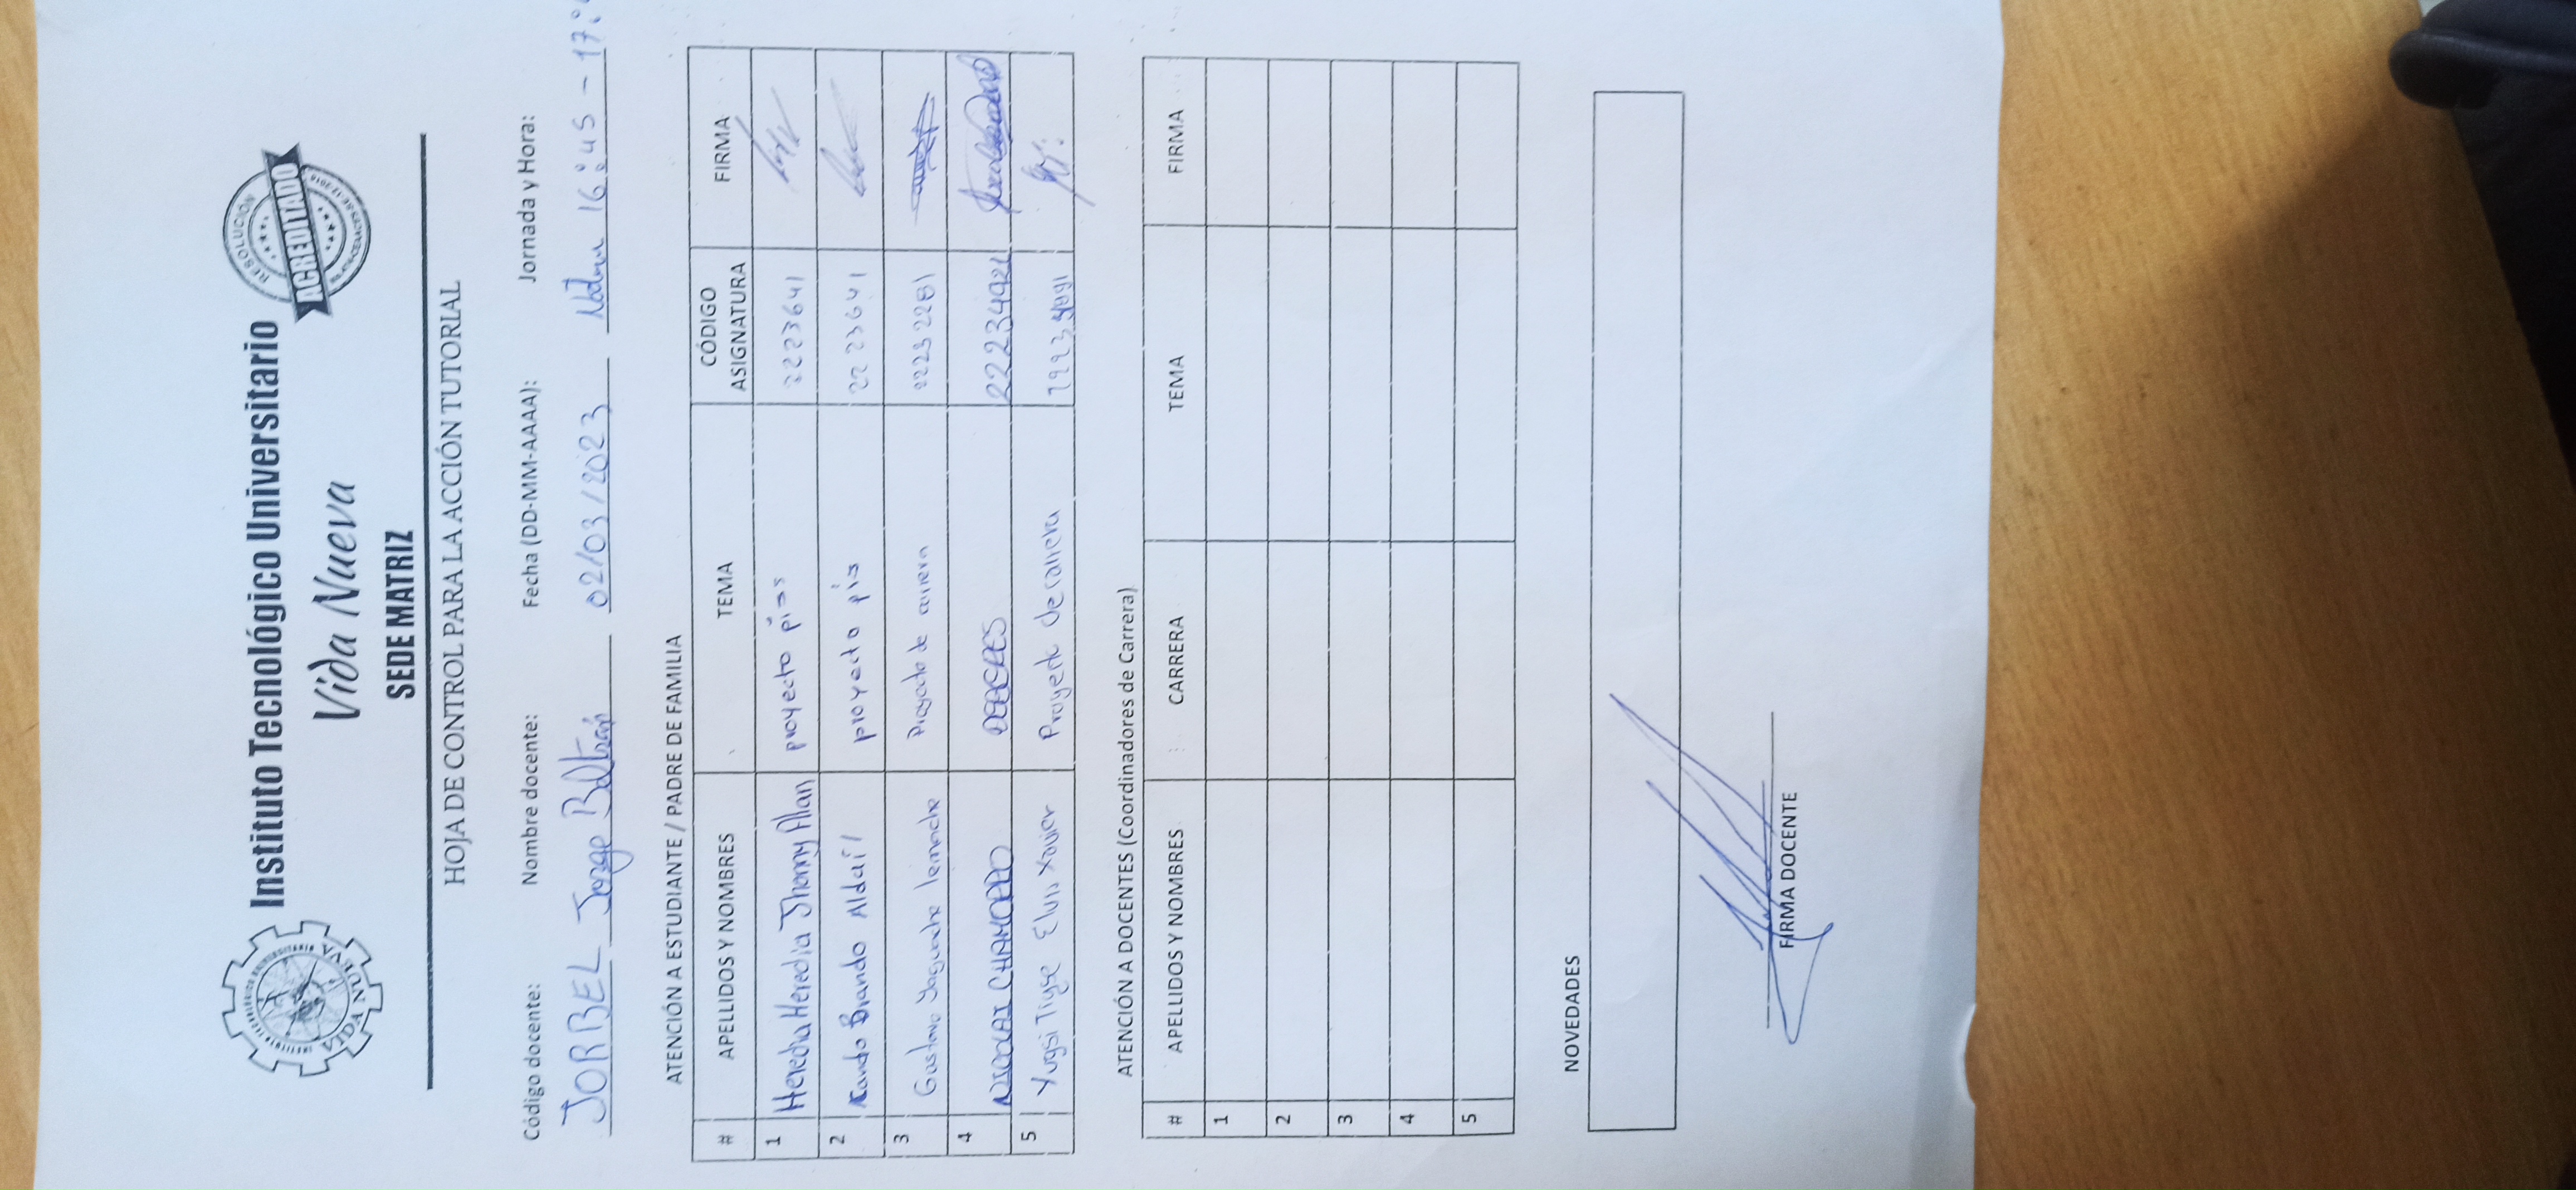 INSTITUTO TECNOLÓGICO UNIVERSITARIO
VIDA NUEVA
Instituto Tecnológico Universitario
Vida Nueva
SEDE MATRIZ
RESOLUCIÓN
ACREDITADO
HOJA DE CONTROL PARA LA ACCIÓN TUTORIAL
Código docente: Nombre docente: Fecha (DD-MM-AAAA): Jornada y Hora:
JORBEL Jorge Beltrán 02/03/2023 16:45 - 17:
ATENCIÓN A ESTUDIANTE / PADRE DE FAMILIA
# APELLIDOS Y NOMBRES TEMA CÓDIGO ASIGNATURA FIRMA
1 Heredia Heredia Jhonny Allan proyecto 2223641
2 Brando Aldail proyecto pis 2223641
3 Gustavo Yaguache lemache Proyecto de carrera
4 NICOLAI CHAMORRO DEBERES
5 Yugsi Tigse Elvis Xavier Proyecto de carrera
ATENCIÓN A DOCENTES (Coordinadores de Carrera)
# APELLIDOS Y NOMBRES CARRERA TEMA FIRMA
1
2
3
4
5
NOVEDADES
FIRMA DOCENTE